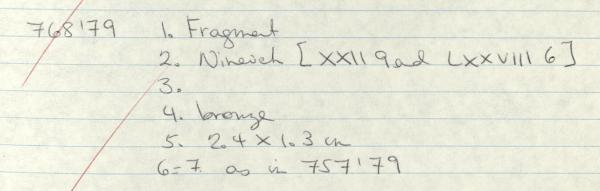 768'79 1. Fragment
2. Nineveh [XXII 9 ad LXXVIII 6]
3.
4. bronze
5. 2.4 x 1.3 cm
6=7. as in 757'79